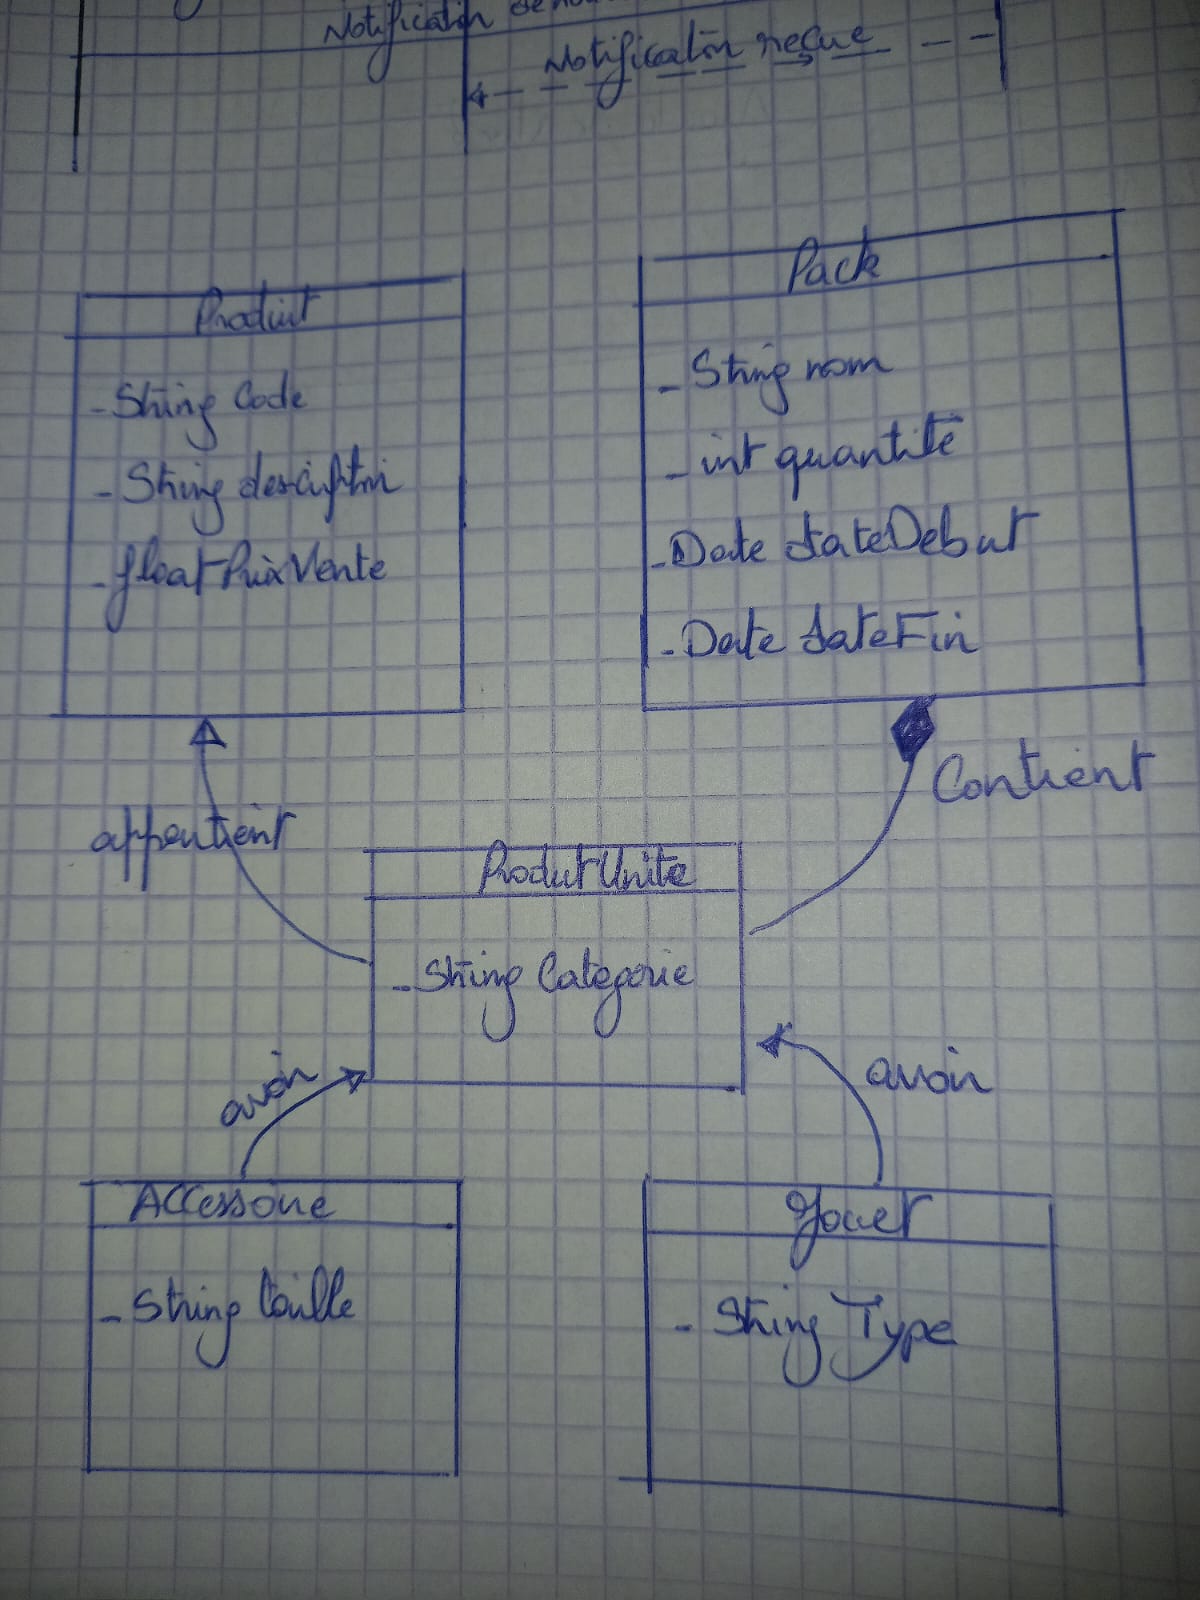 Notification
Notification reçue
Produit
- String Code
- String description
- float PrixVente
Pack
- String nom
- int quantité
- Date dateDebut
- Date dateFin
appartient
Contient
ProduitUnite
- String Categorie
avoir
avoir
Accessoire
- String taille
Jouet
- String Type